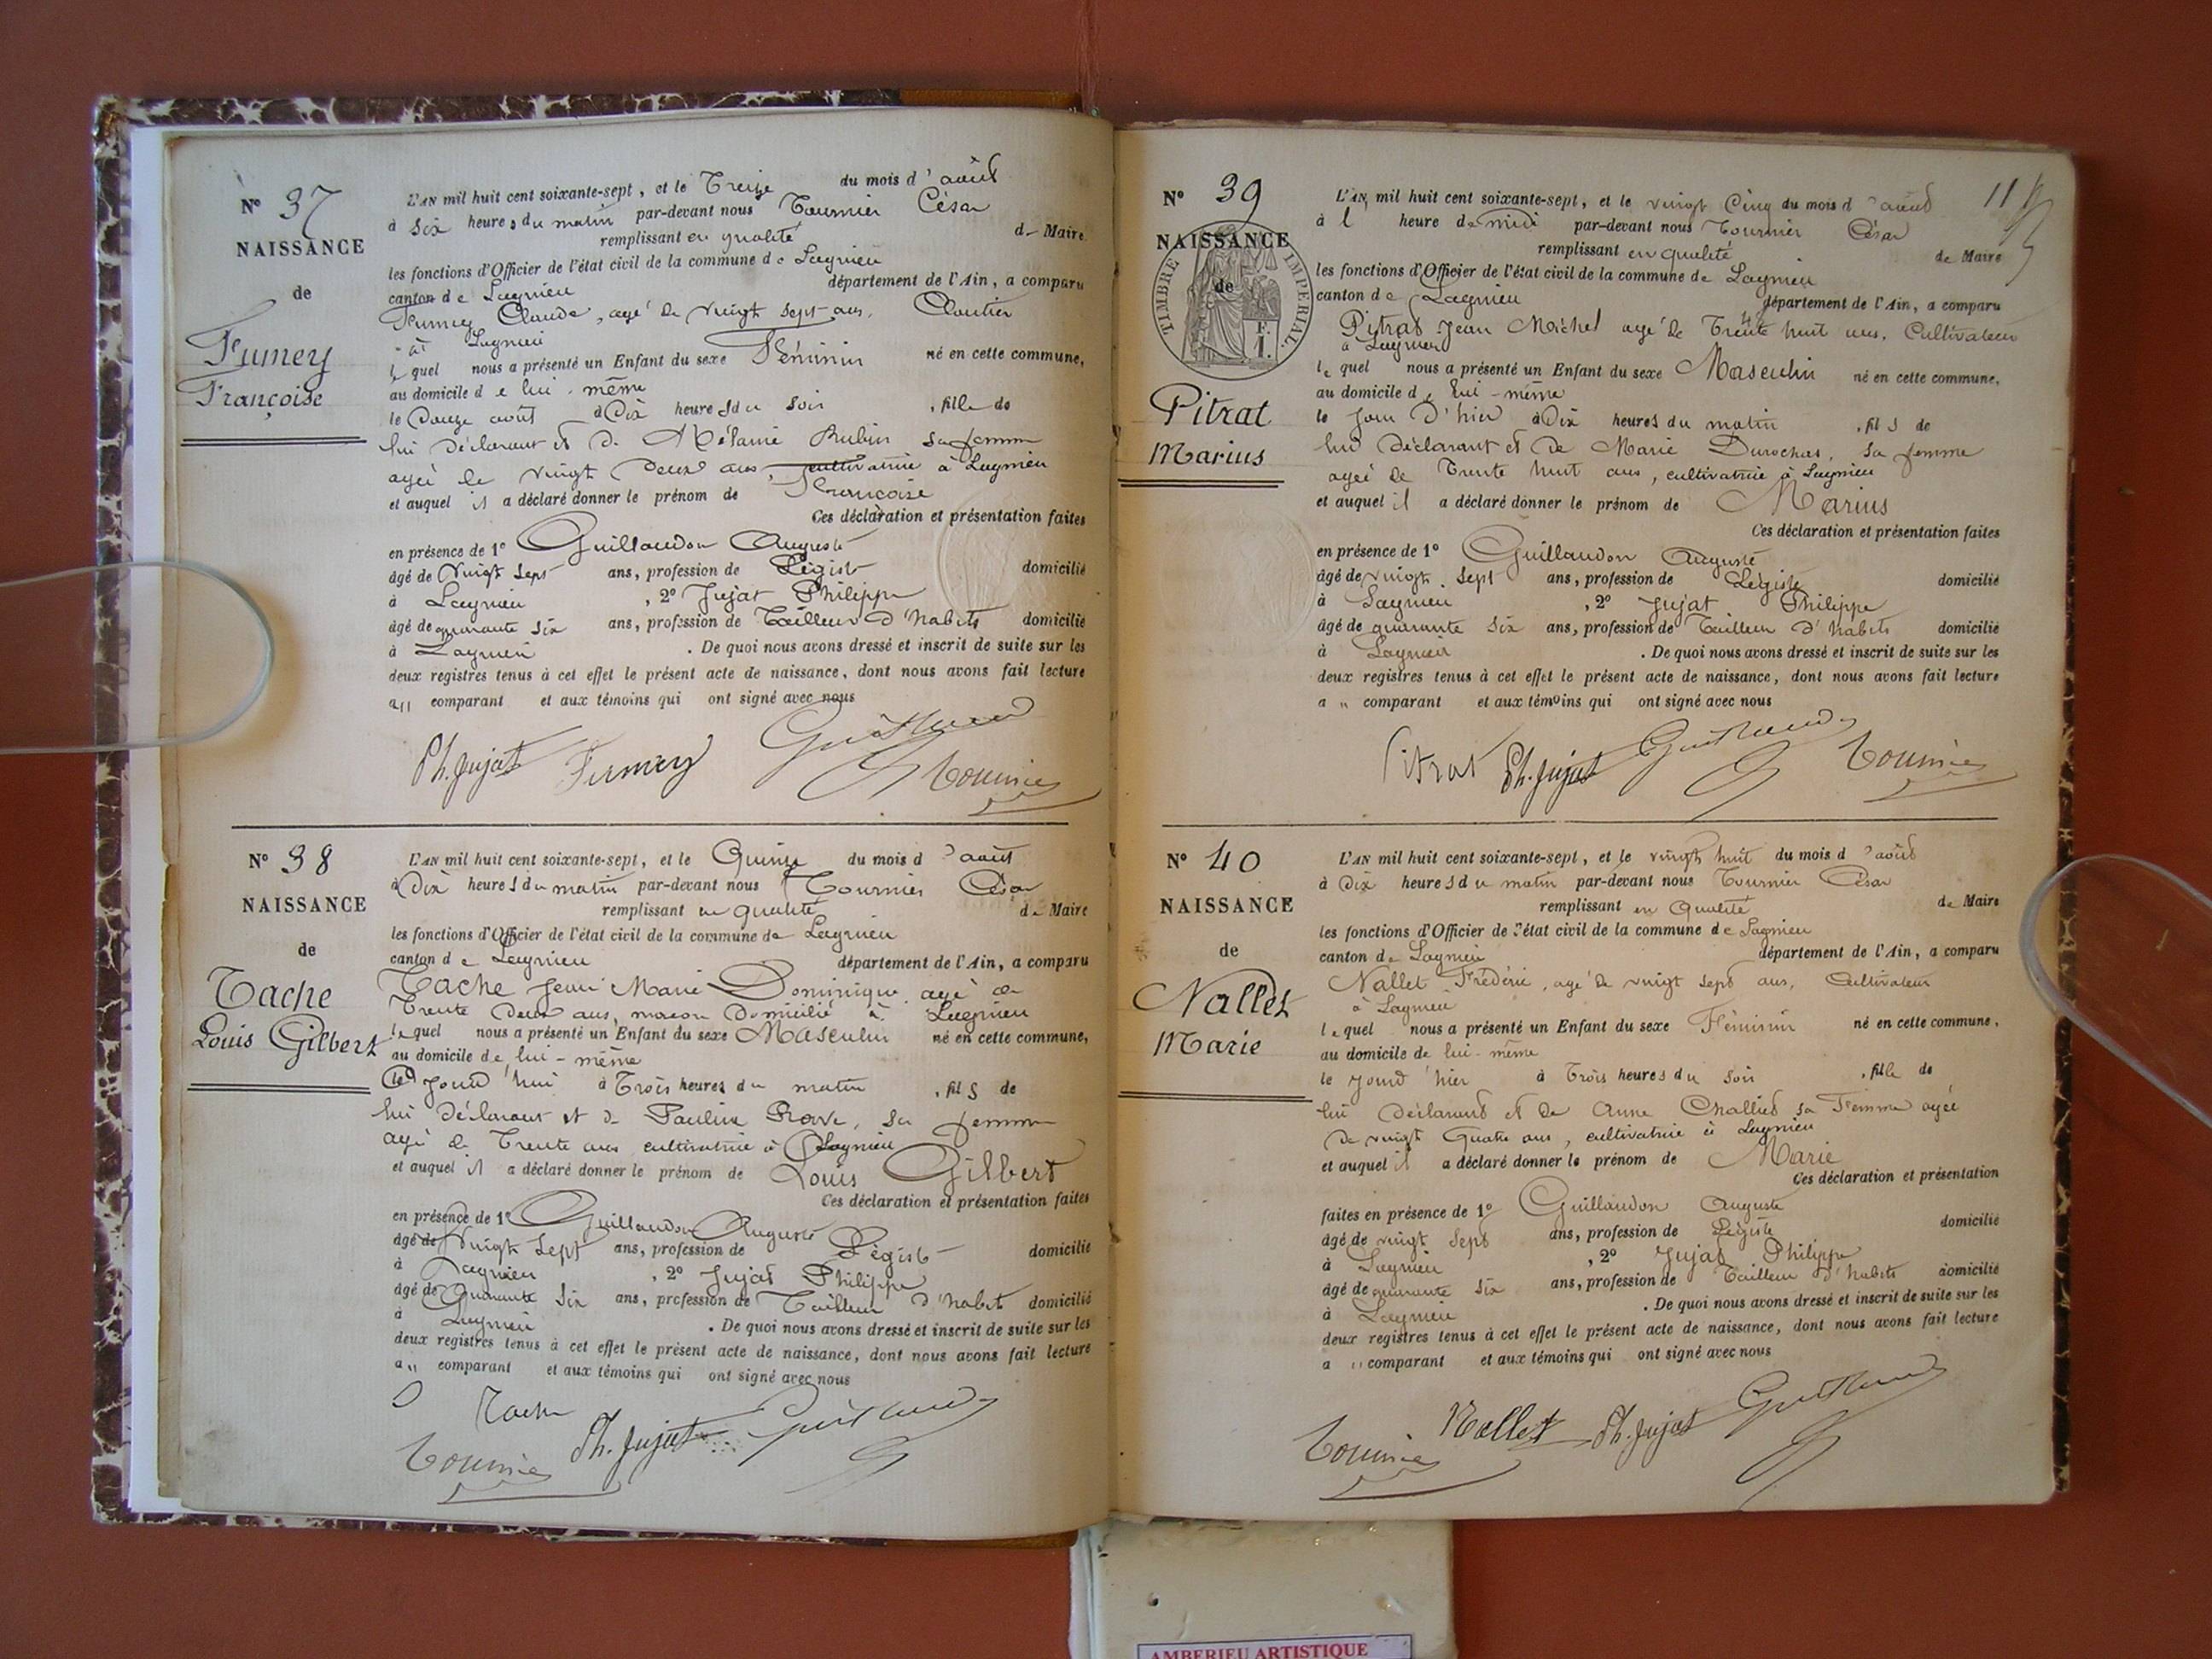 N° 37
NAISSANCE
de
Fumey
Françoise
L'AN mil huit cent soixante-sept, et le Treize du mois d'août
à Six heures du matin par-devant nous Tournier César
remplissant en qualité de Maire
les fonctions d'Officier de l'état civil de la commune de Lagnieu
canton de Lagnieu département de l'Ain, a comparu
Fumey Claude, agé de vingt sept ans, Cloutier
à Lagnieu
lequel nous a présenté un Enfant du sexe Féminin né en cette commune,
au domicile de lui-même
le Douze août à Dix heures du soir, fille de
lui déclarant et de Mélanie Rubin sa femme
agée de vingt deux ans, cultivatrice à Lagnieu
et auquel il a déclaré donner le prénom de Françoise
Ces déclaration et présentation faites
en présence de 1° Guillaudon Auguste
âgé de vingt sept ans, profession de Légiste domicilié
à Lagnieu, 2° Jujat Philippe
âgé de quarante six ans, profession de Tailleur d'habits domicilié
à Lagnieu. De quoi nous avons dressé et inscrit de suite sur les
deux registres tenus à cet effet le présent acte de naissance, dont nous avons fait lecture
au comparant et aux témoins qui ont signé avec nous
Ph. Jujat Fumey Guillaudon Tournier
N° 38
NAISSANCE
de
Tache
Louis Gilbert
L'AN mil huit cent soixante-sept, et le Quinze du mois d'août
à Dix heures du matin par-devant nous Tournier César
remplissant en qualité de Maire
les fonctions d'Officier de l'état civil de la commune de Lagnieu
canton de Lagnieu département de l'Ain, a comparu
Tache Jean Marie Dominique agé de
Trente Deux ans, maçon domicilié à Lagnieu
lequel nous a présenté un Enfant du sexe Masculin né en cette commune,
au domicile de lui-même
jourd'hui à Trois heures du matin, fils de
lui déclarant et de Pauline sa femme
agé de Trente ans cultivatrice à Lagnieu
et auquel il a déclaré donner le prénom de Louis Gilbert
Ces déclaration et présentation faites
en présence de 1° Guillaudon Auguste
âgé de vingt sept ans, profession de Légiste domicilié
à Lagnieu, 2° Jujat Philippe
âgé de Quarante Six ans, profession de Tailleur d'habits domicilié
à Lagnieu. De quoi nous avons dressé et inscrit de suite sur les
deux registres tenus à cet effet le présent acte de naissance, dont nous avons fait lecture
au comparant et aux témoins qui ont signé avec nous
Tache
Tournier Ph. Jujat Guillaudon
118
N° 39
NAISSANCE
de
TIMBRE IMPERIAL
Pitrat
Marius
L'AN mil huit cent soixante-sept, et le vingt Cinq du mois d'août
à l heure de midi par-devant nous Tournier César
remplissant en qualité de Maire
les fonctions d'Officier de l'état civil de la commune de Lagnieu
canton de Lagnieu département de l'Ain, a comparu
Pitrat Jean Michel agé de Trente huit ans, Cultivateur
à Lagnieu
lequel nous a présenté un Enfant du sexe Masculin né en cette commune,
au domicile de lui-même
le jour d'hier à Dix heures du matin, fils de
lui déclarant et de Marie Durochas, sa femme
agée de Trente huit ans, cultivatrice à Lagnieu
et auquel il a déclaré donner le prénom de Marius
Ces déclaration et présentation faites
en présence de 1° Guillaudon Auguste
âgé de vingt sept ans, profession de Légiste domicilié
à Lagnieu, 2° Jujat Philippe
âgé de quarante six ans, profession de Tailleur d'habits domicilié
à Lagnieu. De quoi nous avons dressé et inscrit de suite sur les
deux registres tenus à cet effet le présent acte de naissance, dont nous avons fait lecture
au comparant et aux témoins qui ont signé avec nous
Pitrat Ph. Jujat Guillaudon Tournier
N° 40
NAISSANCE
de
Nallet
Marie
L'AN mil huit cent soixante-sept, et le vingt huit du mois d'août
à Dix heures du matin par-devant nous Tournier César
remplissant en Qualité de Maire
les fonctions d'Officier de l'état civil de la commune de Lagnieu
canton de Lagnieu département de l'Ain, a comparu
Nallet Frédéric, agé de vingt sept ans, Cultivateur
à Lagnieu
lequel nous a présenté un Enfant du sexe Féminin né en cette commune,
au domicile de lui-même
le jourd'hier à Trois heures du soir, fille de
lui déclarant et de Anne Challiet sa Femme agée
de vingt Quatre ans, cultivatrice à Lagnieu
et auquel il a déclaré donner le prénom de Marie
Ces déclaration et présentation
faites en présence de 1° Guillaudon Auguste
âgé de vingt sept ans, profession de Légiste domicilié
à Lagnieu, 2° Jujat Philippe
âgé de quarante six ans, profession de Tailleur d'habits domicilié
à Lagnieu. De quoi nous avons dressé et inscrit de suite sur les
deux registres tenus à cet effet le présent acte de naissance, dont nous avons fait lecture
au comparant et aux témoins qui ont signé avec nous
Tournier Nallet Ph. Jujat Guillaudon
AMBERIEU ARTISTIQUE